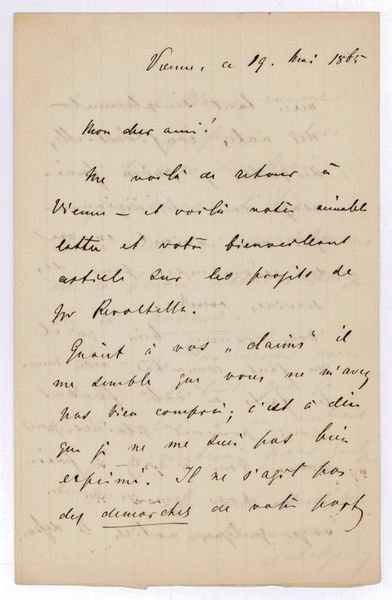 Vienne, ce 19. Mai 1865
Mon cher ami!
Me voilà de retour à
Vienne — et voilà votre aimable
lettre et votre bienveillant
article sur les projets de
Mr Revoltella.
Quant à vos „claims" il
me semble que vous ne m'avez
pas bien compris; c'est à dire
que je ne me suis pas bien
exprimé. Il ne s'agit pas
des demarches de votre part,